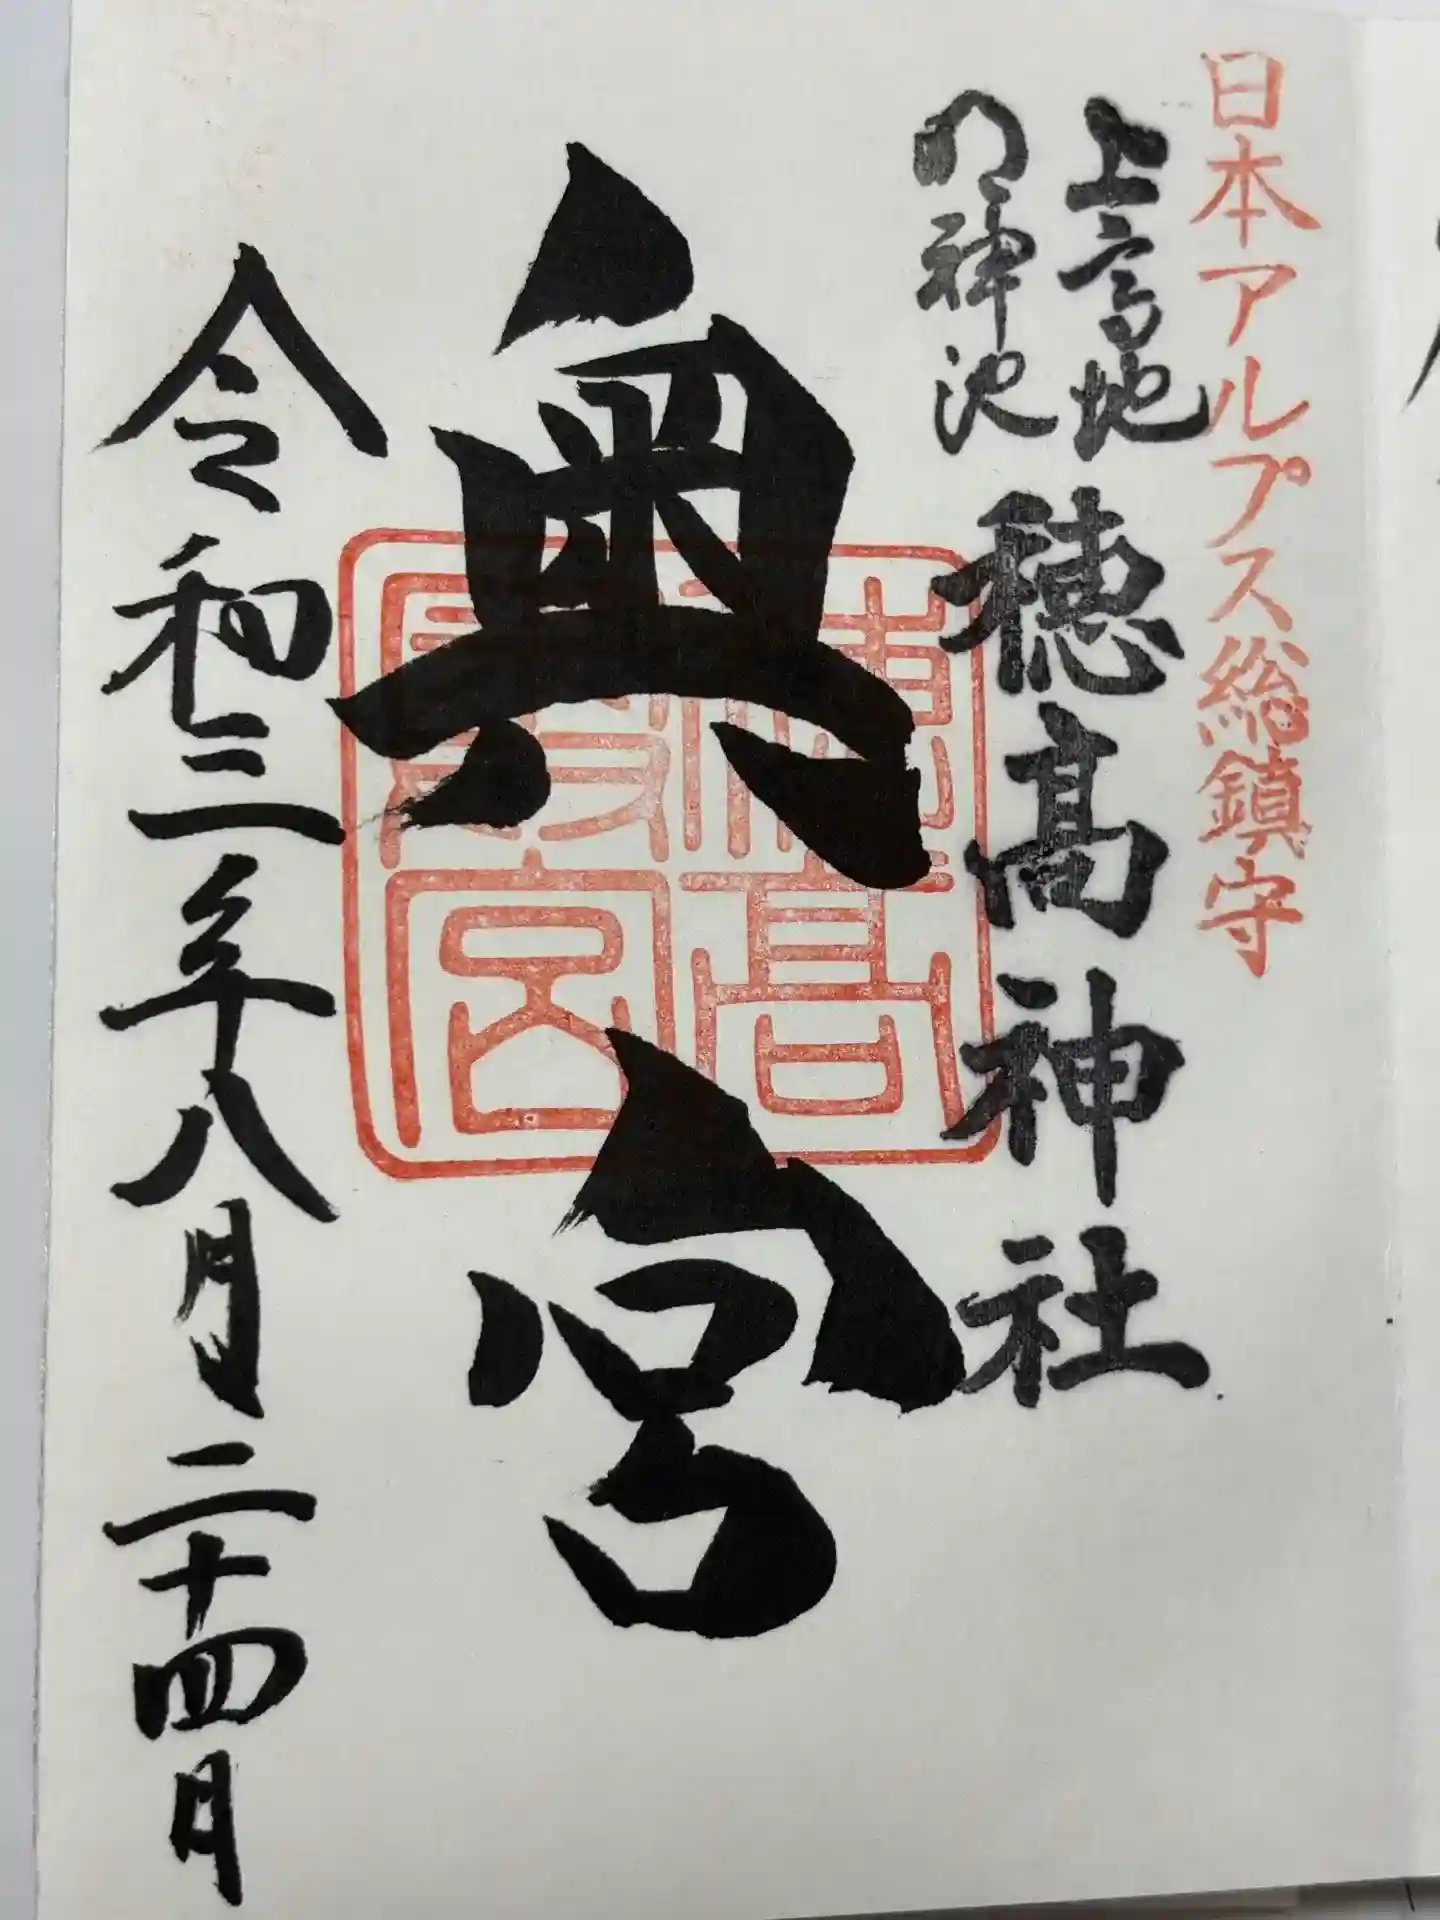 日本アルプス総鎮守
上高地
明神池
穂高神社
奥宮
穂高
嶺宮
令和三年八月二十四日